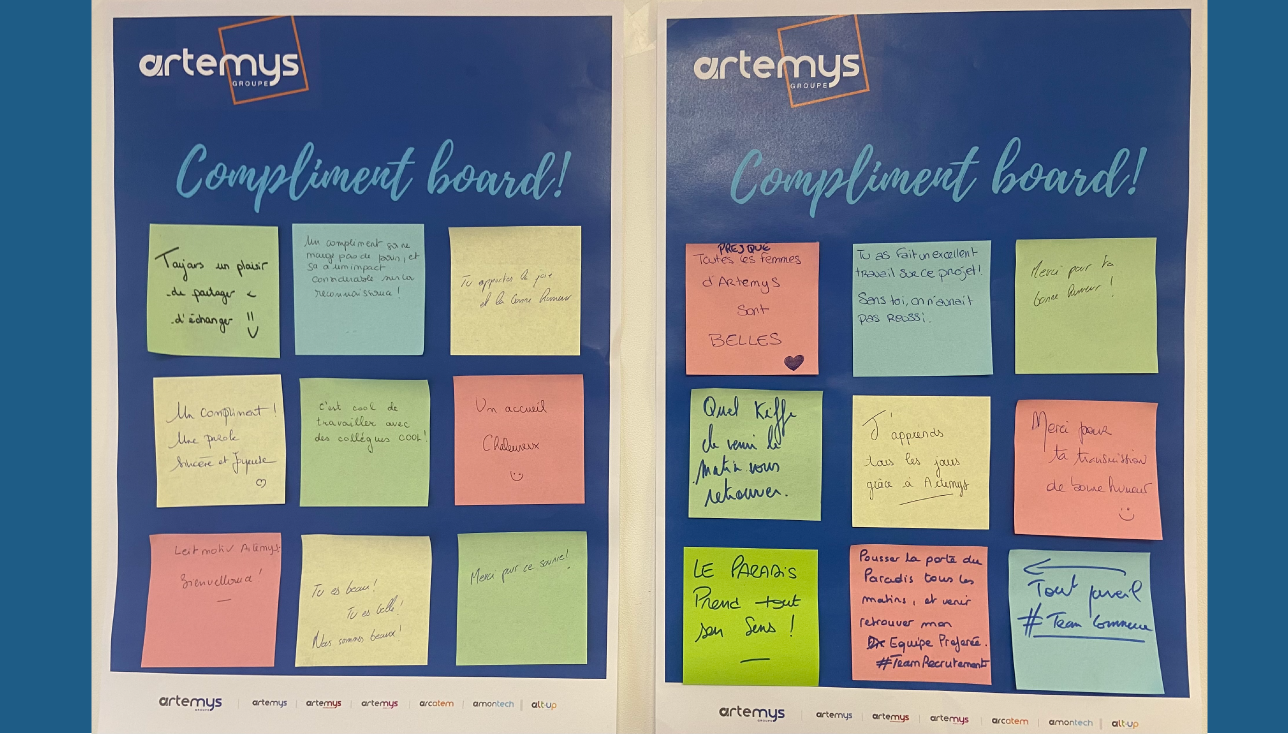 artemys
GROUPE
Compliment board!
Toujours un plaisir
de partager &
d'échanger !!
Un compliment ça ne
mange pas de pain, et
ça a un impact
considérable sur la
reconnaissance !
Tu apportes la joie
et la bonne humeur
Un compliment !
Une parole
sincère et Joyeuse
c'est cool de
travailler avec
des collègues COOL!
Un accueil
Chaleureux
Leit motiv Artemys
Bienveillance !
Tu es beau !
Tu es belle !
Nous sommes beaux !
Merci pour ce sourire!
artemys
GROUPE
artemys
artemys
artemys
arcatem
amontech
alt-up
artemys
GROUPE
Compliment board!
PRESQUE
Toutes les femmes
d'Artemys
Sont
BELLES
Tu as fait un excellent
travail sur ce projet!
Sans toi, on n'aurait
pas réussi.
Merci pour ta
bonne humeur !
Quel Kiffe
de venir le
matin vous
retrouver.
J'apprends
tous les jours
grâce à Artemys
Merci pour
ta transmission
de bonne humeur
LE PARADIS
Prend tout
son Sens !
Pousser la porte du
Paradis tous les
matins, et venir
retrouver mon
Equipe Préférée.
#TeamRecrutement
Tout pareil
# Team Commerce
artemys
GROUPE
artemys
artemys
artemys
arcatem
amontech
alt-up